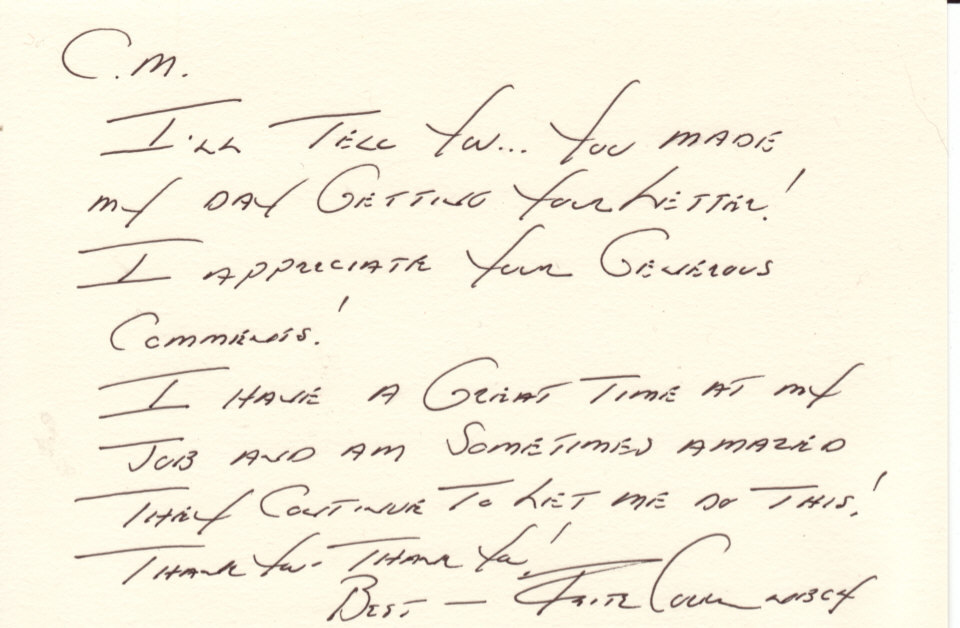 C.M.
I'll Tell You... You made
my day Getting Your Letter!
I appreciate Your Generous
Comments!
I have a Great Time at my
Job and am Sometimes amazed
They Continue To Let me do This!
Thank You - Thank You!
Best — Fritz